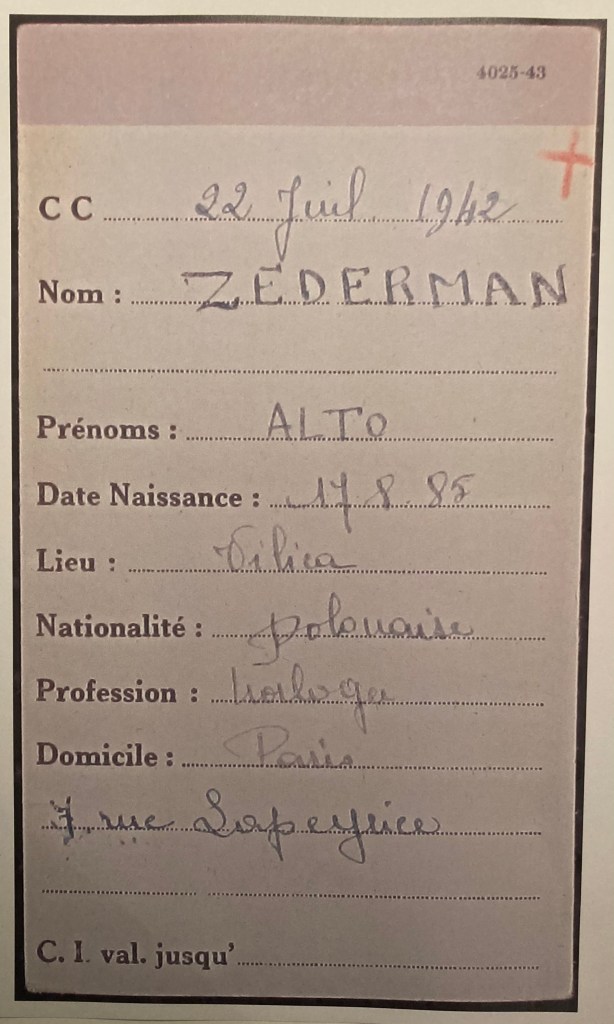 4025-43
C C 22 Juil. 1942
Nom : ZEDERMAN
Prénoms : ALTO
Date Naissance : 17 8 85
Lieu :
Nationalité : polonaise
Profession : horloger
Domicile : Paris
7 rue Lapeyrière
C. I. val. jusqu'